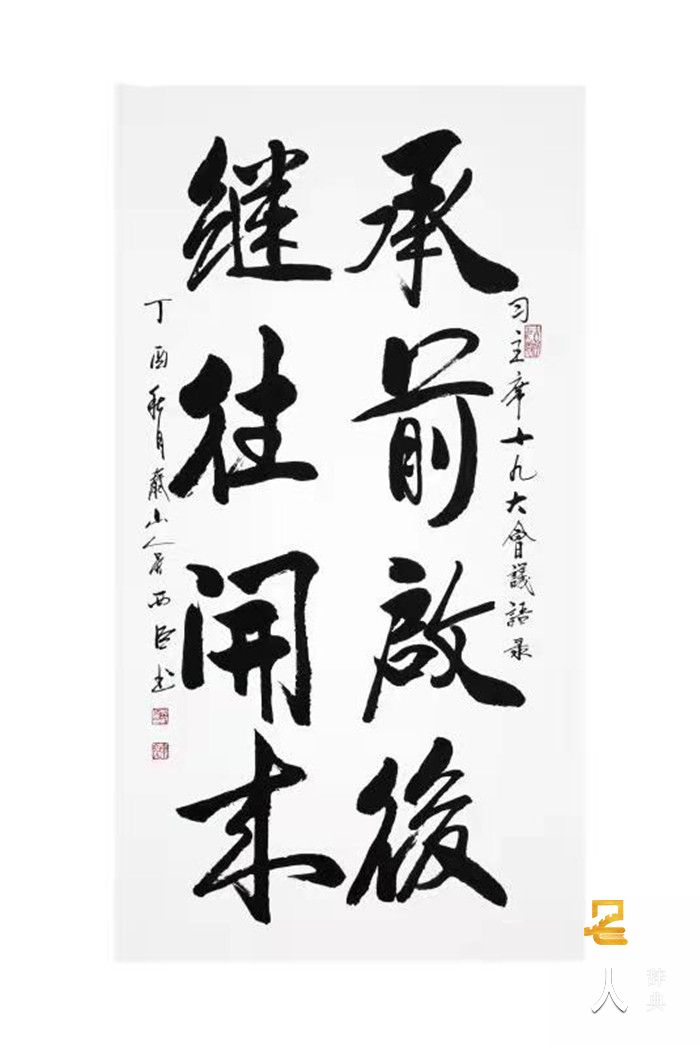 习主席十九大會議語录
承前啟後
继往開来
丁酉秋月山人西书
人
辞典